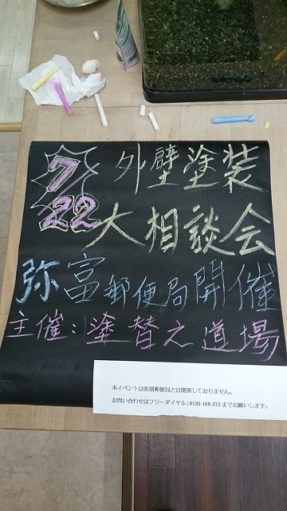 7/22 外壁塗装
大相談会
弥富郵便局開催
主催:塗替え道場
本イベントは弥富郵便局とは関係しておりません。
お問い合わせはフリーダイヤル:0120-168-373までお願いします。